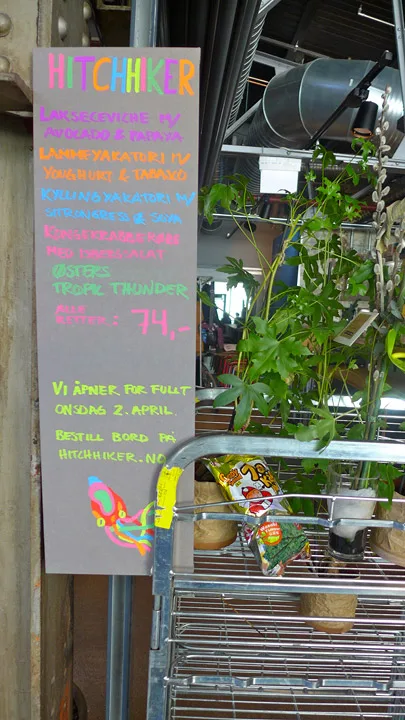 HITCHHIKER
LAKSECEVICHE M/
AVOCADO & PAPAYA
LAMMEYAKATORI M/
YOUGHURT & TABASCO
KYLLINGYAKATORI M/
SITRONGRESS & SOYA
KONGEKRABBEKAKE
MED ISBERGSALAT
ØSTERS
TROPIC THUNDER
ALLE
RETTER: 74,-
VI ÅPNER FOR FULLT
ONSDAG 2. APRIL.
BESTILL BORD PÅ
HITCHHIKER.NO